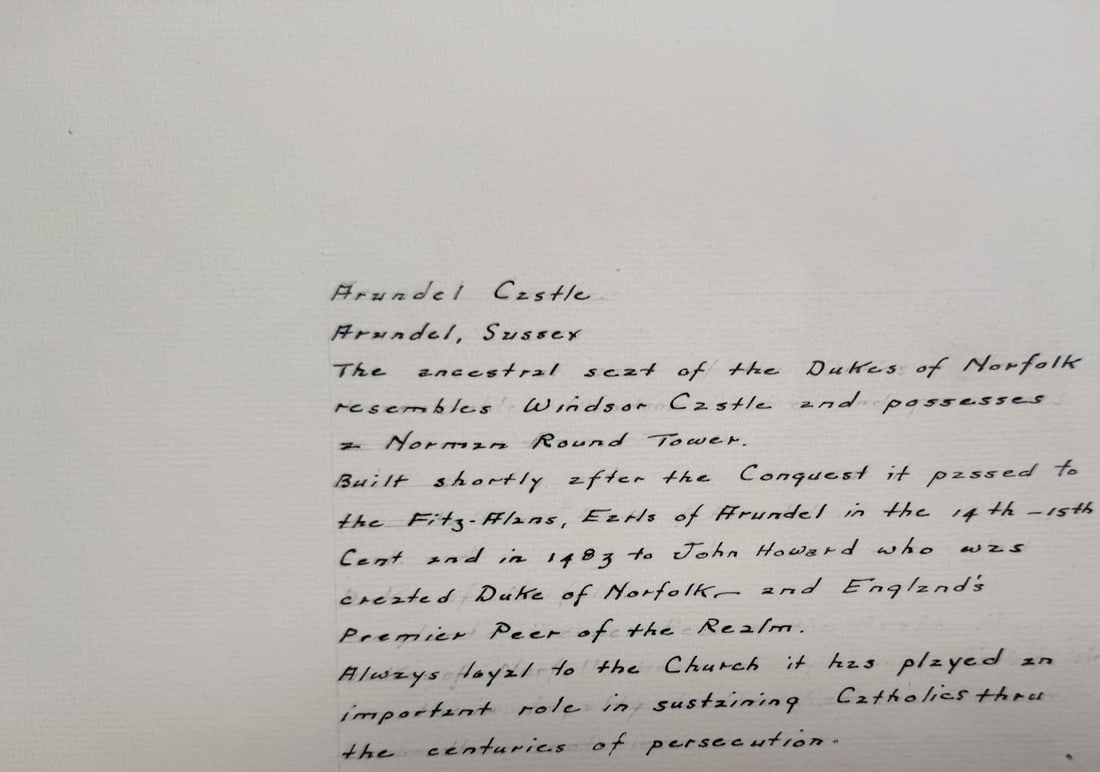 Arundel Castle
Arundel, Sussex
The ancestral seat of the Dukes of Norfolk
resembles Windsor Castle and possesses
a Norman Round Tower.
Built shortly after the Conquest it passed to
the Fitz-Alans, Earls of Arundel in the 14th - 15th
Cent and in 1483 to John Howard who was
created Duke of Norfolk — and England's
Premier Peer of the Realm.
Always loyal to the Church it has played an
important role in sustaining Catholics thru
the centuries of persecution.